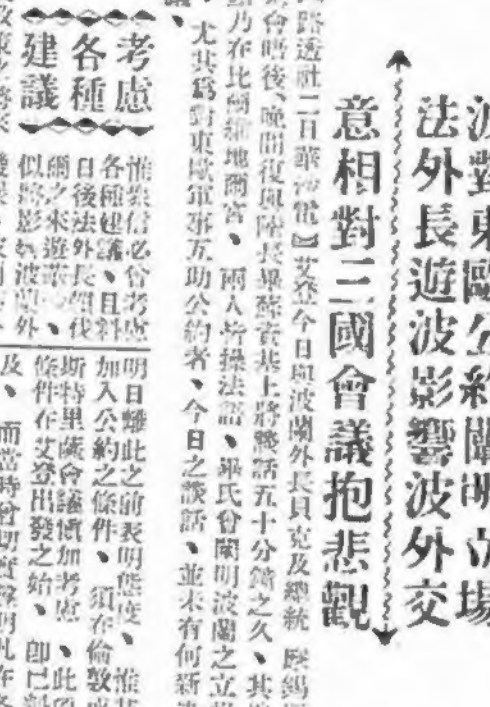 波對東歐公約闡明立場
法外長遊波影響波外交
意相對三國會議抱悲觀
路透社二日華沙電】艾登今日與波蘭外長貝克及總統
會晤後、晚間復與陸長畢蘇資基上將談話五十分鐘之久、其
乃在比爾維地爾宮、兩人皆操法語、畢氏曾闡明波蘭之立
尤其為對東歐軍事互助公約者、今日之談話、並未有何新
議、
考慮
各種
建議
惟眾信必曾考慮
各種建議、且料
日後法外長賴伐
爾之來遊、
似將影響波蘭外
明日離此之前表明態度、惟
加入公約之條件、須在倫敦
斯特里薩會議慎加考慮、此項
條件在艾登出發之始、即已
及、而當時曾切實聲明凡在各